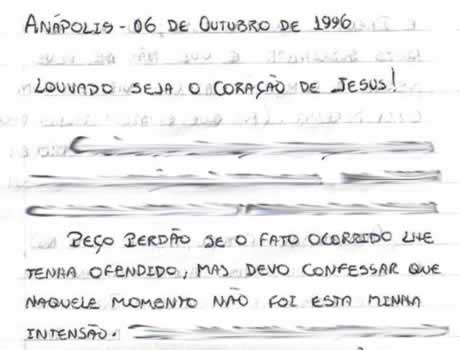 ANÁPOLIS - 06 DE OUTUBRO DE 1996
LOUVADO SEJA O CORAÇÃO DE JESUS!
PEÇO PERDÃO SE O FATO OCORRIDO LHE
TENHA OFENDIDO, MAS DEVO CONFESSAR QUE
NAQUELE MOMENTO NÃO FOI ESTA MINHA
INTENSÃO.